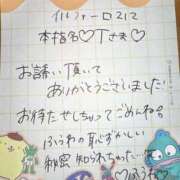 イルフィーロ212
本指名♡Tさま♡
お誘い頂いて
ありがとうございました
お待たせしちゃってごめんね
ふうわの恥ずかしい
秘密知られちゃった